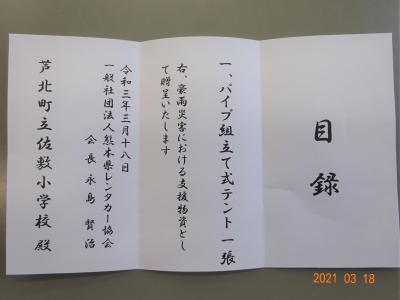 目録
一、パイプ組立て式テント 一張
右、豪雨災害における支援物資とし
て贈呈いたします
令和三年三月十八日
一般社団法人熊本県レンタカー協会
会長 永島 賢治
芦北町立佐敷小学校 殿
2021 03 18